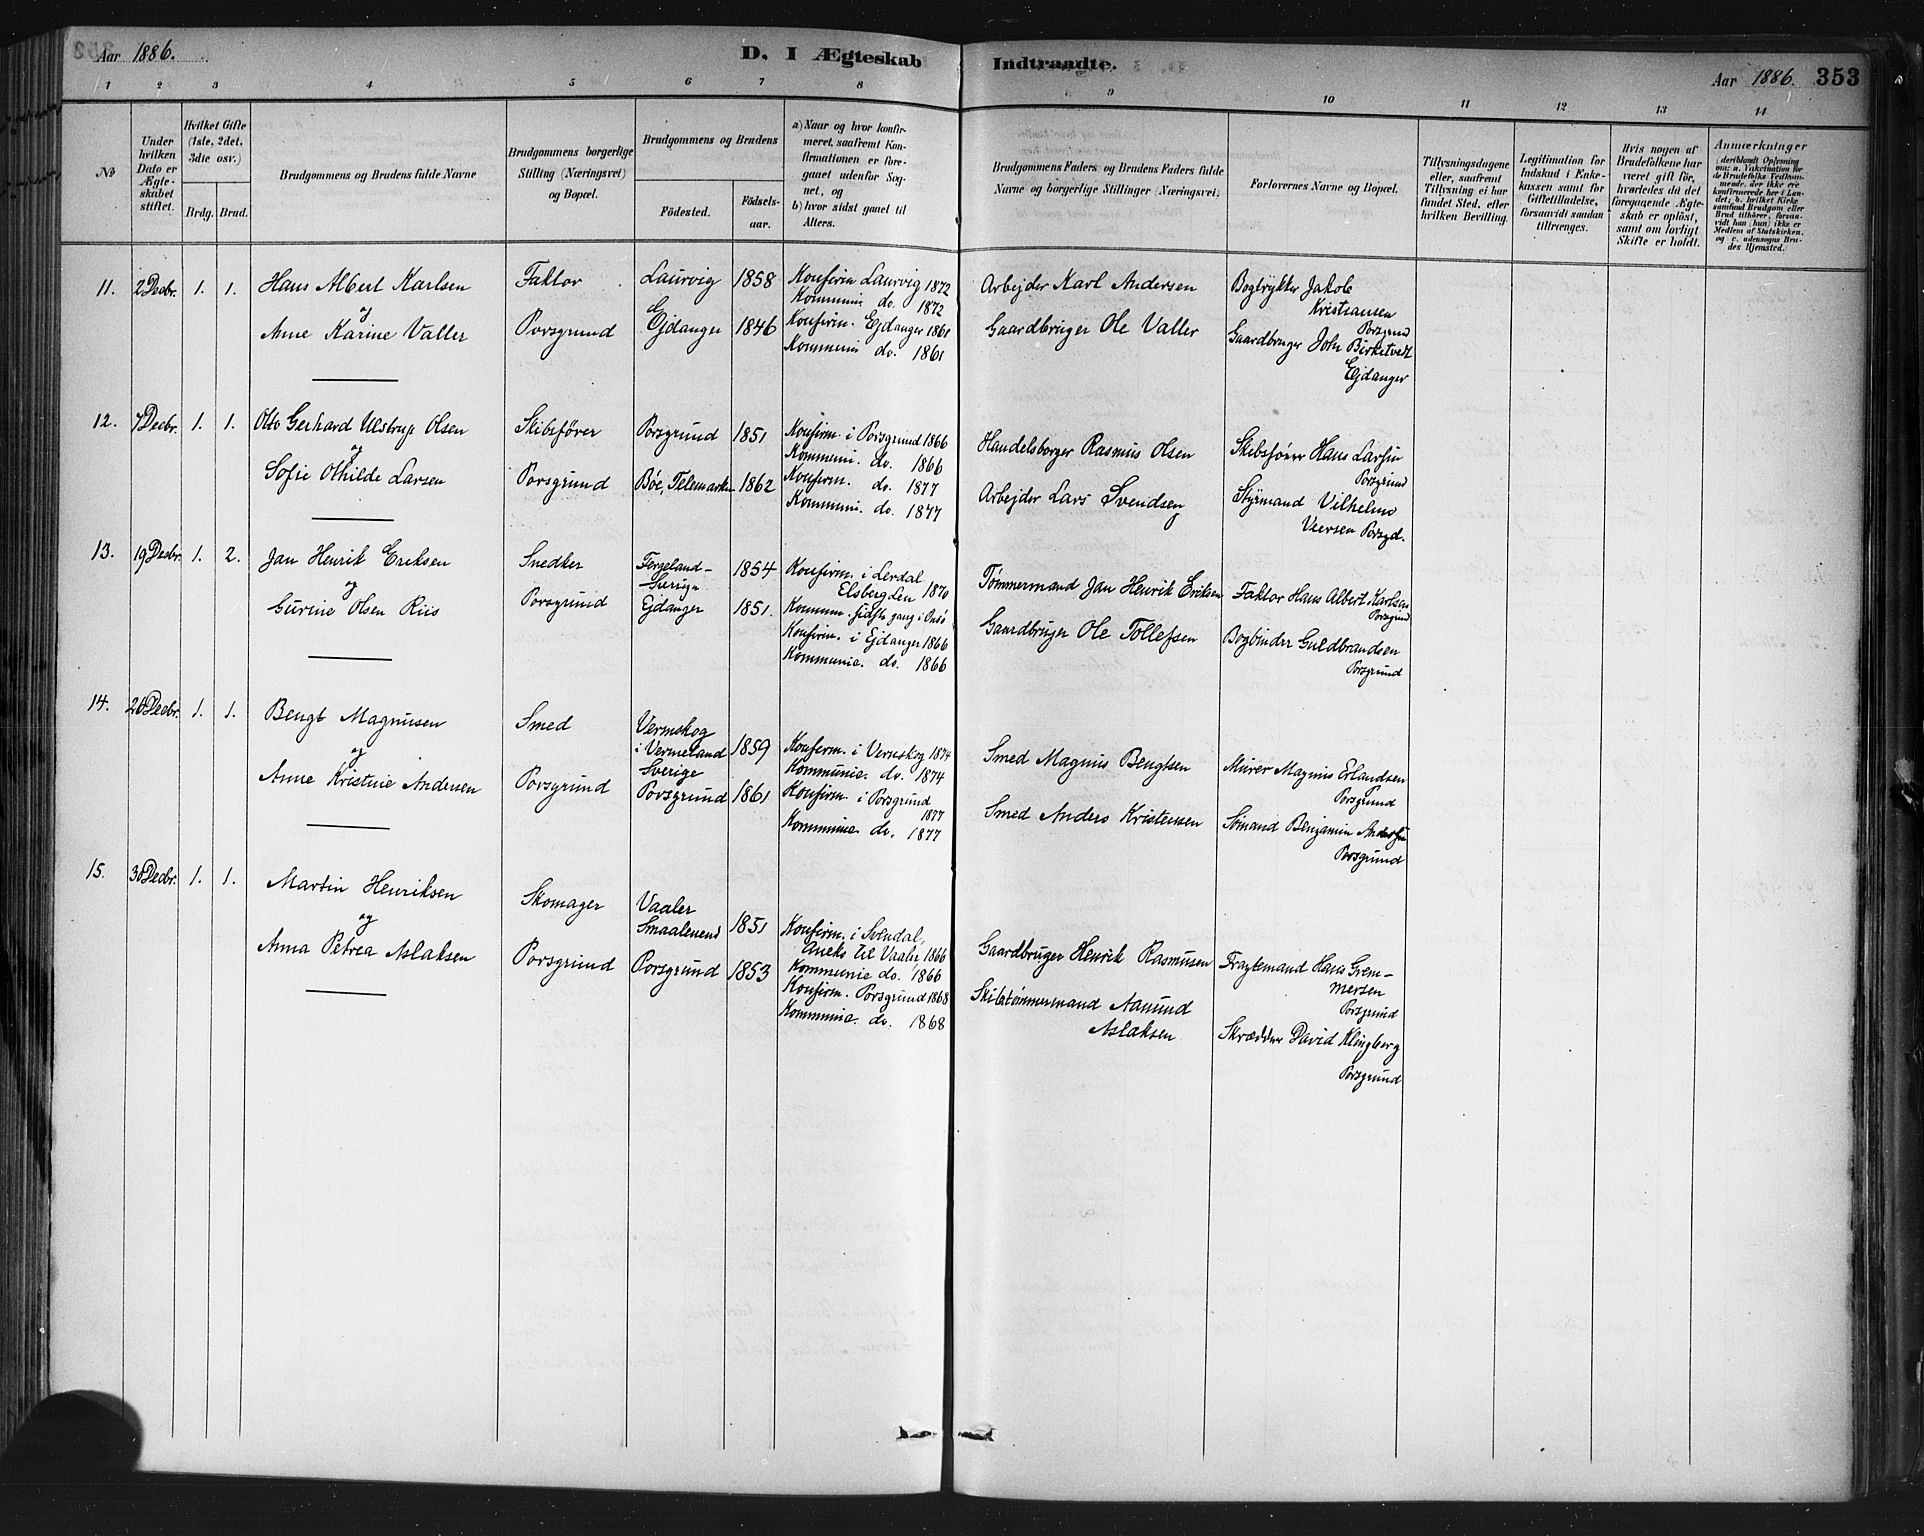 Aar 1886.
D. I Ægteskab Indtraadte.
Aar 1886. 353
1 2 3 4 5 6 7 8 9 10 11 12 13 14
No
Under hvilken Dato er Ægteskabet stiftet.
Hvilket Gifte (1ste, 2det, 3die osv.)
Brdg. Brud.
Brudgommens og Brudens fulde Navne
Brudgommens borgerlige Stilling (Næringsvei) og Bopæl.
Brudgommens og Brudens
Fødested.
Fødselsaar.
a) Naar og hvor konfirmeret, saafremt Konfirmationen er foregaaet udenfor Sognet, og
b) hvor sidst gaaet til Alters.
Brudgommens Faders og Brudens Faders fulde Navne og borgerlige Stillinger (Næringsvei)
Forlovernes Navne og Bopæl.
Tillysningsdagene eller, saafremt Tillysning ei har fundet Sted, efter hvilken Bevilling.
Legitimation for Indskud i Enkekassen samt for Giftetilladelse, forsaavidt saadan tiltrænges.
Hvis nogen af Brudefolkene har været gift før, hvorledes da det foregaaende Ægteskab er opløst, samt om lovligt Skifte er holdt.
Anmærkninger
(deriblandt Oplysning om: a. Vakcination for de Brudefolks Vedkommende, der ikke ere konfirmerede her i Landet; b. hvilket Kirkesamfund Brudgom eller Brud tilhører, forsaavidt han (hun) ikke er Medlem af Statskirken, og c. udensogns Brudes Hjemsted.
11. 2 Decbr. 1. 1. Hans Albert Karlsen
og
Anne Karine Valler
Faktor
Porsgrund
Laurvig 1858
Ejdanger 1846
Konfirm Laurvig 1872
Kommunio do. 1872
Konfirm. Ejdanger 1861
Kommunio do. 1861
Arbejder Karl Andersen
Gaardbruger Ole Valler
Bogtrykker Jakob
Kristiansen
Porsgrund
Gaardbruger John Birketvedt
Ejdanger
12. 7 Decbr. 1. 1. Otto Gerhard Ulstrup Olsen
og
Sofie Othilde Larsen
Skibsfører
Porsgrund
Porsgrund 1851
Bøe, Telemarken 1862
Konfirm. i Porsgrund 1866
Kommuni. do. 1866
Konfirm. do. 1877
Kommuni. do. 1877
Handelsborger Rasmus Olsen
Arbejder Lars Svendsen
Skibsfører Hans Larsen
Porsgrund
Styrmand Vilhelm
Porsgd.
13. 19 Decbr. 1. 2. Jan Henrik Eriksen
og
Gurine Olsen Riis
Snedker
Porsgrund
Sverige 1854
Ejdanger 1851.
Konfirm. i Lerdal
1870
Kommun. sidste gang i Onsø
Konfirm. i Ejdanger 1866
Kommunio. do. 1866
Tømmermand Jan Henrik Eriksen
Gaardbruger Ole Tollefsen
Faktor Hans Albert Karlsen
Porsgrund
Bogbinder Guldbrandsen
Porsgrund
14. 26 Decbr. 1. 1. Bengt Magnusen
og
Anne Kristine Andersen
Smed
Porsgrund
Vermskog
i Vermeland 1859
Sverige
Porsgrund 1861
Konfirm. i Vermskog 1874
Kommunio. do. 1874
Konfirm. i Porsgrund
1877
Kommunio. do. 1877
Smed Magnus Bengtsen
Smed Anders Kristensen
Murer Magnus Erlandsen
Porsgrund
Sømand Benjamin Andersen
Porsgrund
15. 30 Decbr. 1. 1. Martin Henriksen
og
Anna Petrea Aslaksen
Skomager
Porsgrund
Vaaler
Smaalenene 1851
Porsgrund 1853
Konfirm. i Svendal,
Aneks til Vaaler 1866
Kommunio do. 1866
Konfirm. Porsgrund 1868
Kommunio. do. 1868
Gaardbruger Henrik Rasmusen
Skibstømmermand Aamund
Aslaksen
Fragtemand Hans Grem-
mersen
Porsgrund
Skrædder David Klingberg
Porsgrund